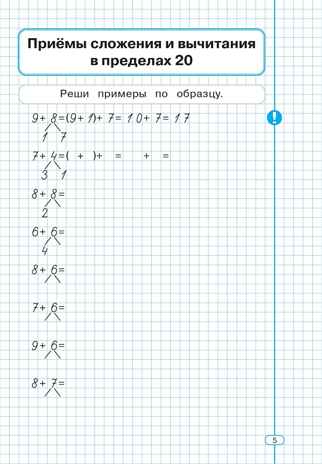 Приёмы сложения и вычитания
в пределах 20
Реши примеры по образцу.
9+ 8=(9+1)+ 7= 1 0+ 7= 1 7
1 7
7+ 4=( + )+ = + =
3 1
8+ 8=
2
6+ 6=
4
8+ 6=
7+ 6=
9+ 6=
8+ 7=
!
5